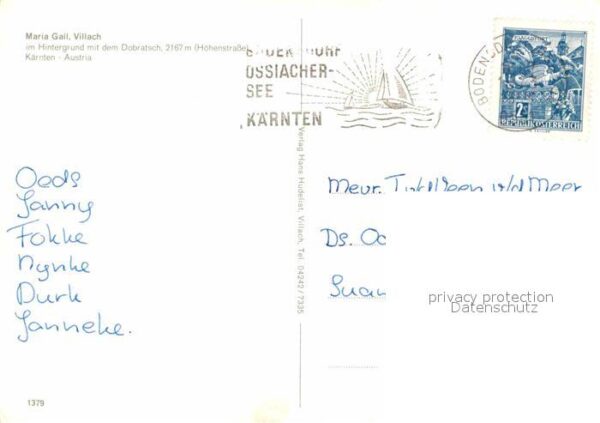 Maria Gail, Villach
im Hintergrund mit dem Dobratsch, 2167 m (Höhenstraße)
Kärnten - Austria
BODENSDORF
OSSIACHER-
SEE
KÄRNTEN
BODENSDO
2S
REPUBLIK ÖSTERREICH
Verlag Hans Hudelist, Villach, Tel. 04242/7335
Oeds
Janny
Fokke
Nynke
Durk
Janneke.
Mevr.
Ds.
privacy protection
Datenschutz
1379